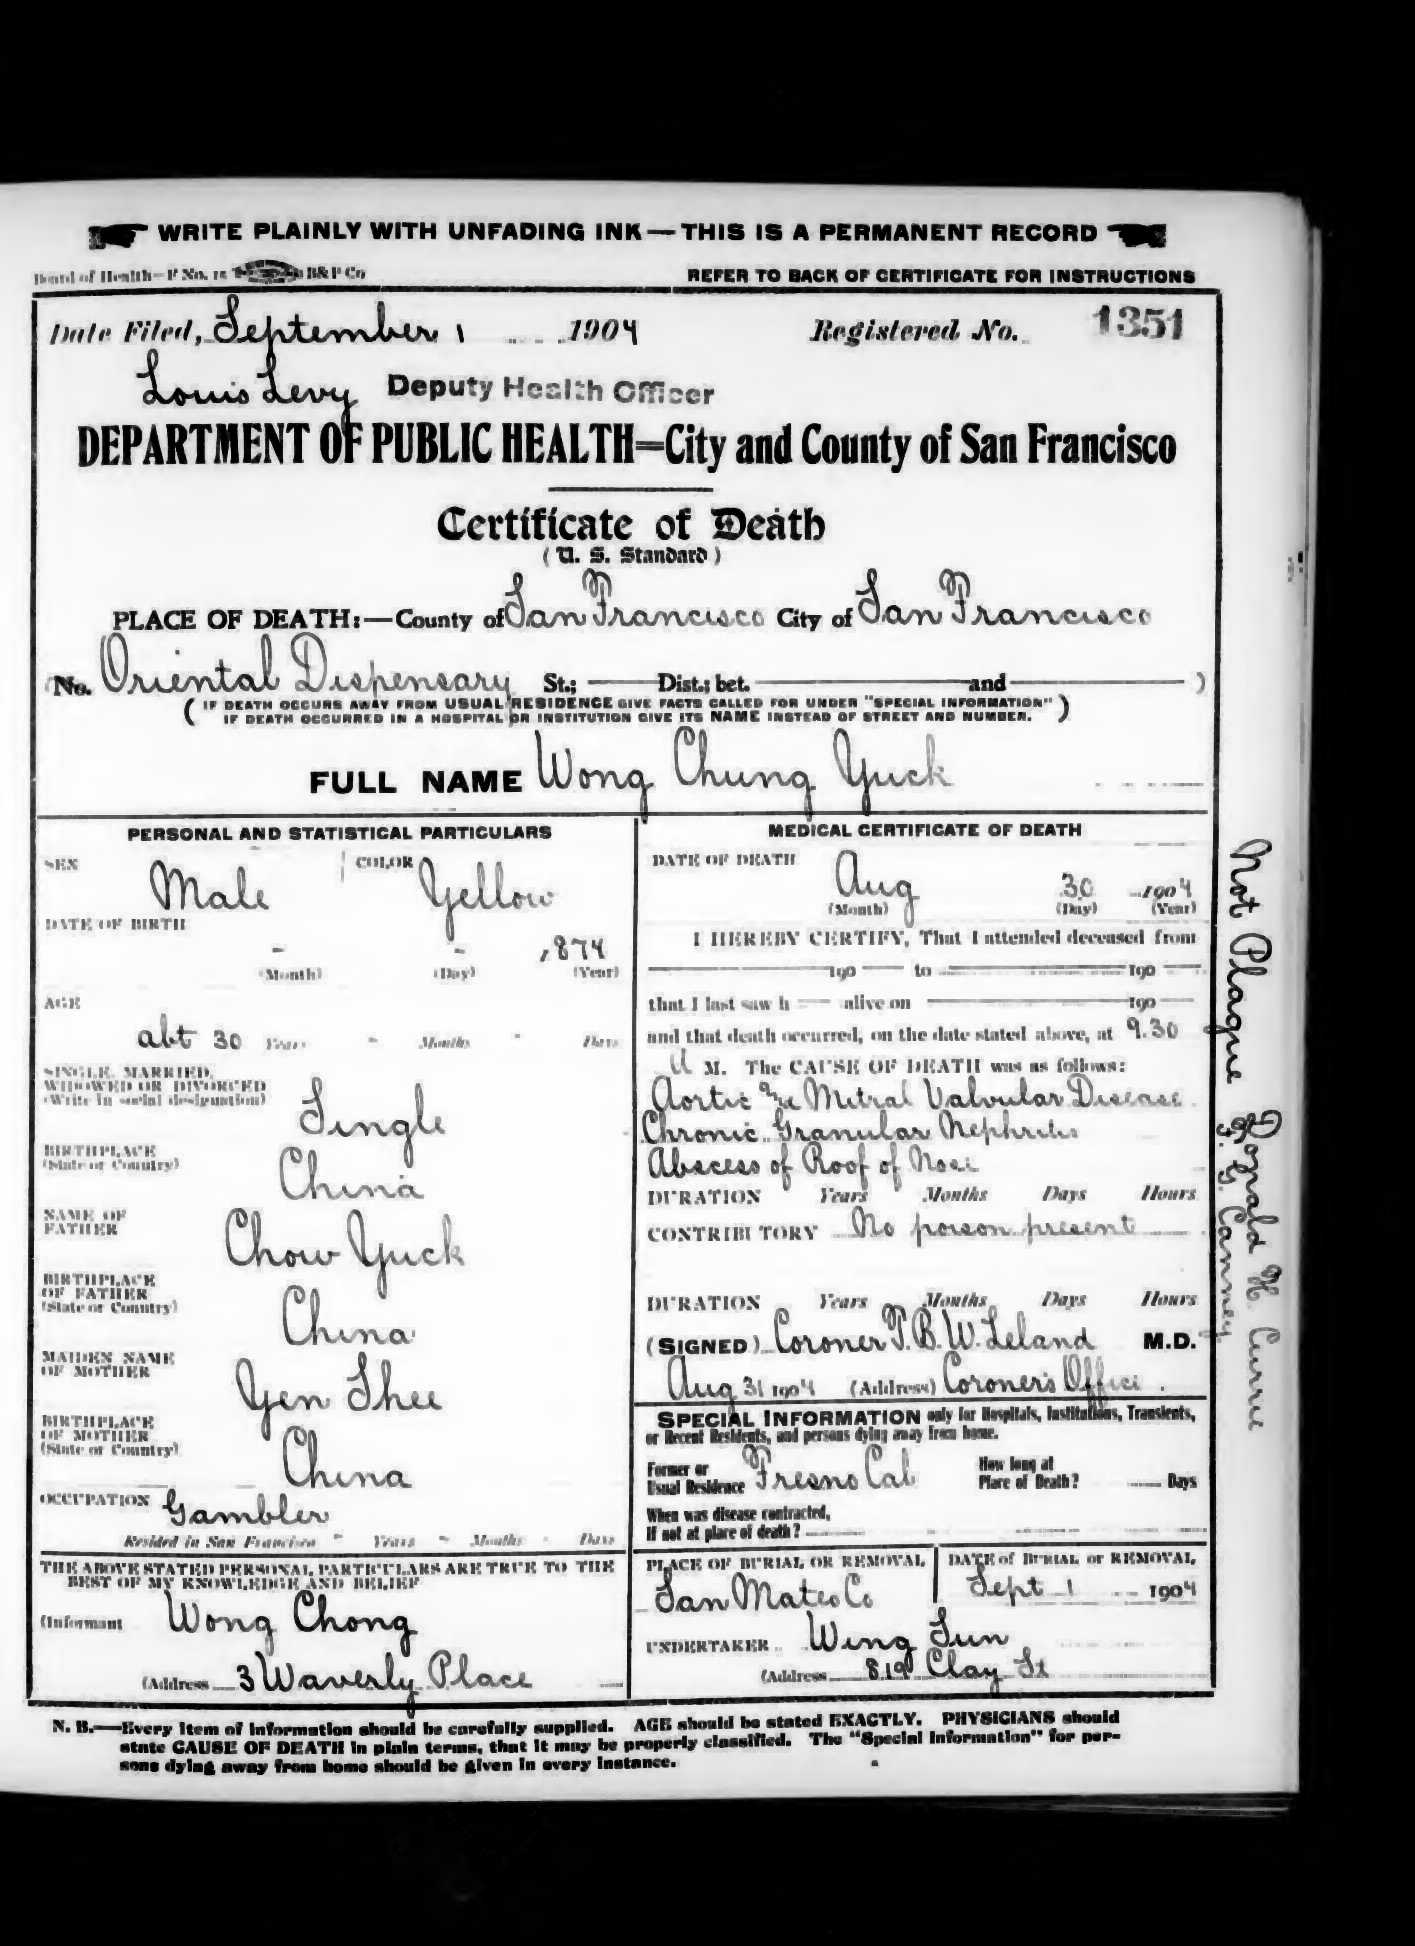 WRITE PLAINLY WITH UNFADING INK — THIS IS A PERMANENT RECORD
Board of Health—F No. 15 B&P Co REFER TO BACK OF CERTIFICATE FOR INSTRUCTIONS
Date Filed, September 1 1904 Registered No. 1351
Louis Levy Deputy Health Officer
DEPARTMENT OF PUBLIC HEALTH=City and County of San Francisco
Certificate of Death
( U. S. Standard )
PLACE OF DEATH:—County of San Francisco City of San Francisco
No. Oriental Dispensary St.; Dist.; bet. and )
( IF DEATH OCCURS AWAY FROM USUAL RESIDENCE GIVE FACTS CALLED FOR UNDER "SPECIAL INFORMATION" )
IF DEATH OCCURRED IN A HOSPITAL OR INSTITUTION GIVE ITS NAME INSTEAD OF STREET AND NUMBER.
FULL NAME Wong Chung Yuck
PERSONAL AND STATISTICAL PARTICULARS
SEX Male COLOR Yellow
DATE OF BIRTH
- - 1874
(Month) (Day) (Year)
AGE
abt 30 Years - Months - Days
SINGLE, MARRIED,
WIDOWED OR DIVORCED
(Write in social designation) Single
BIRTHPLACE
(State or Country) China
NAME OF
FATHER Chow Yuck
BIRTHPLACE
OF FATHER
(State or Country) China
MAIDEN NAME
OF MOTHER Yen Shee
BIRTHPLACE
OF MOTHER
(State or Country) China
OCCUPATION Gambler
Resided in San Francisco - Years - Months - Days
THE ABOVE STATED PERSONAL PARTICULARS ARE TRUE TO THE
BEST OF MY KNOWLEDGE AND BELIEF
(Informant Wong Chong
(Address 3 Waverly Place
MEDICAL CERTIFICATE OF DEATH
DATE OF DEATH Aug 30 1904
(Month) (Day) (Year)
I HEREBY CERTIFY, That I attended deceased from
190 to 190
that I last saw h alive on 190
and that death occurred, on the date stated above, at 9.30
M. The CAUSE OF DEATH was as follows:
Aortic and Mitral Valvular Disease
Chronic Granular Nephritis
Abscess of Roof of Nose
DURATION Years Months Days Hours
CONTRIBUTORY No poison present
DURATION Years Months Days Hours
(SIGNED) Coroner T. B. W. Leland M.D.
Aug 31 1904 (Address) Coroner's Office
SPECIAL INFORMATION only for Hospitals, Institutions, Transients,
or Recent Residents, and persons dying away from home.
Former or
Usual Residence Fresno Cal
How long at
Place of Death? Days
When was disease contracted,
If not at place of death?
PLACE OF BURIAL OR REMOVAL
San Mateo Co
DATE of BURIAL or REMOVAL
Sept 1 1904
UNDERTAKER Wing Sun
(Address 819 Clay St
N. B.—Every item of information should be carefully supplied. AGE should be stated EXACTLY. PHYSICIANS should
state CAUSE OF DEATH in plain terms, that it may be properly classified. The "Special Information" for per-
sons dying away from home should be given in every instance.
Not Plague Donald H. Currie
F. G. Canney